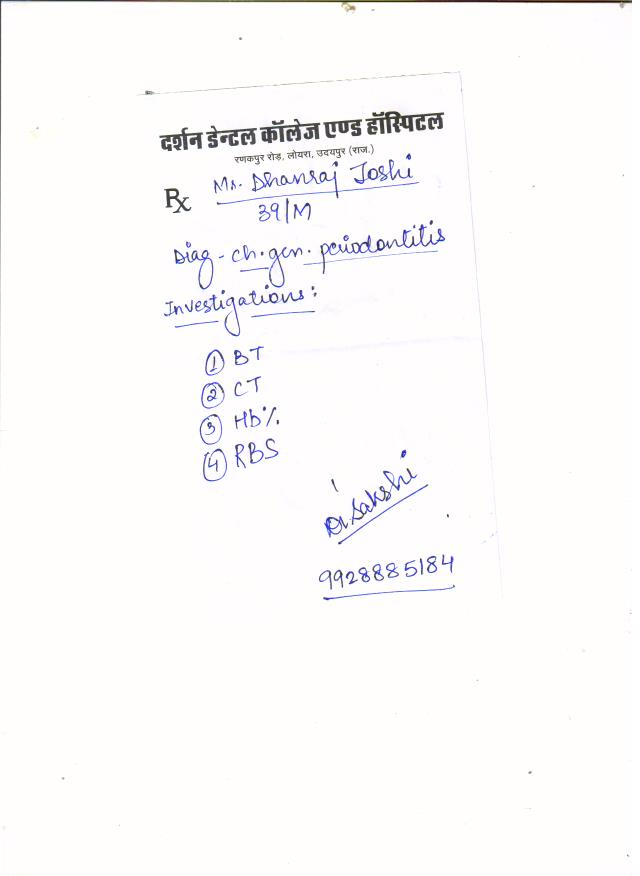 दर्शन डेन्टल कॉलेज एण्ड हॉस्पिटल
रणकपुर रोड़, लोयरा, उदयपुर (राज.)
Rx Mr. Dhanraj Joshi
39/M
Diag - ch. gen. periodontitis
Investigations:
① BT
② CT
③ Hb%
④ RBS
Dr Sakshi
9928885184